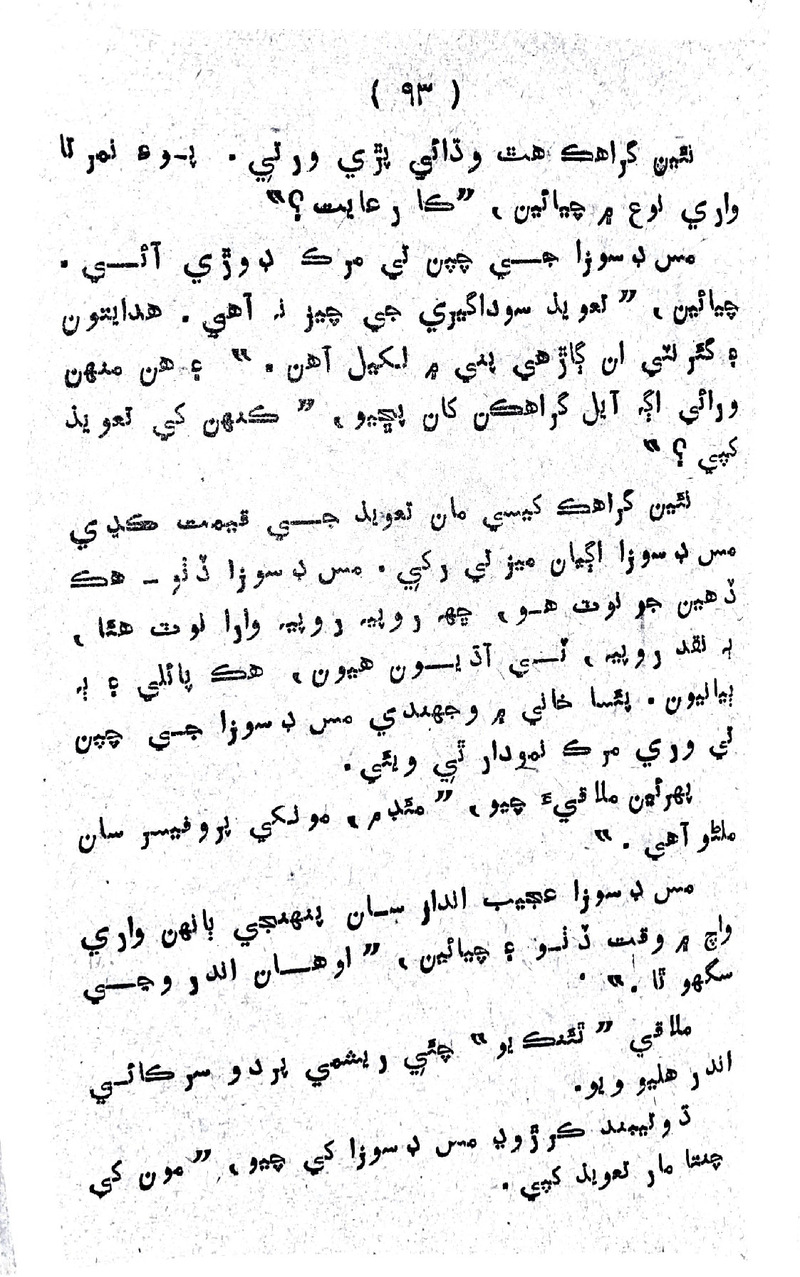 ( ٩٣ )
نئين گراهڪ هٿ وڌائي پڙي ورتي. پوءِ نمرتا
واري نوع ۾ چيائين، ”ڪا رعايت؟“
مس ڊسوزا جي چپن تي مرڪ ڊوڙي آئي.
چيائين، ”تعويذ سوداگيري جي چيز نه آهي. هدايتون
۽ گئرنٽي ان ڳاڙهي پني ۾ لکيل آهن.“ ۽ هن منهن
ورائي اڳ آيل گراهڪن کان پڇيو، ”ڪنهن کي تعويذ
کپي؟“
نئين گراهڪ کيسي مان تعويذ جي قيمت ڪڍي
مس ڊسوزا اڳيان ميز تي رکي. مس ڊسوزا ڏٺو ـ هڪ
ڏهين جو نوٽ هو، ڇهه روپيه روپيه وارا نوٽ هئا،
ٻه نقد روپيه، ٽي آڌيون هيون، هڪ پائلي ۽ ٻه
ٻياليون. پئسا خاني ۾ وجهندي مس ڊسوزا جي چپن
تي وري مرڪ نمودار ٿي ويئي.
پهرئين ملاقيءَ چيو، ”مئڊم، مونکي پروفيسر سان
ملڻو آهي.“
مس ڊسوزا عجيب انداز سان پنهنجي ٻانهن واري
واچ ۾ وقت ڏٺو ۽ چيائين، ”اوهان اندر وڃي
سگهو ٿا.“
ملاقي ”ٿئنڪ يو“ چئي ريشمي پردو سرڪائي
اندر هليو ويو.
ڌوليبند ڪرڙوڍ مس ڊسوزا کي چيو، ”مون کي
چنتا مار تعويذ کپي.